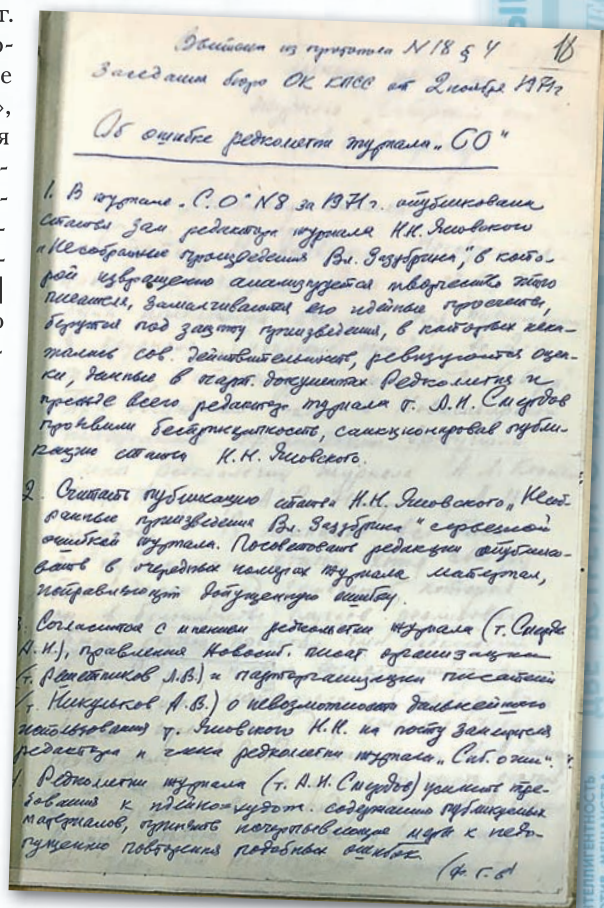 18
Выписка из протокола N18 § 4
Заседания бюро ОК КПСС от 2 ноября 1971г
Об ошибке редколлегии журнала „СО"
1. В журнале „С.О" N8 за 1971г. опубликована
статья зам. редактора журнала Н.Н. Яновского
„Несобранные произведения Вл. Зазубрина", в кото-
рой извращенно анализируется творчество этого
писателя, замалчиваются его идейные просчеты,
берутся под защиту произведения, в которых иска-
жалась сов. действительность, ревизуются оцен-
ки, данные в парт. документах. Редколлегия и
прежде всего редактор журнала т. А.И. Смердов
проявили беспринципность, санкционировав публи-
кацию статьи Н.Н. Яновского.
2. Считать публикацию статьи Н.Н. Яновского „Несоб-
ранные произведения Вл. Зазубрина" серьезной
ошибкой журнала. Посоветовать редакции опублико-
вать в очередных номерах журнала материал,
исправляющий допущенную ошибку.
3. Согласиться с мнением редколлегии журнала (т. Смердов
А.И.), правления Новосиб. писат организации
(т. Решетников Л.В.) и парторганизации писателей
(т. Никульков А.В.) о невозможности дальнейшего
использования т. Яновского Н.Н. на посту заместителя
редактора и члена редколлегии журнала „Сиб. огни".
4. Редколлегии журнала (т. А.И. Смердов) усилить тре-
бования к идейно-худож. содержанию публикуемых
материалов, принять исчерпывающие меры к недо-
пущению повторения подобных ошибок.
г.
о-
е
»,
я
о
ТЕЛЛИГЕНТНОСТЬ